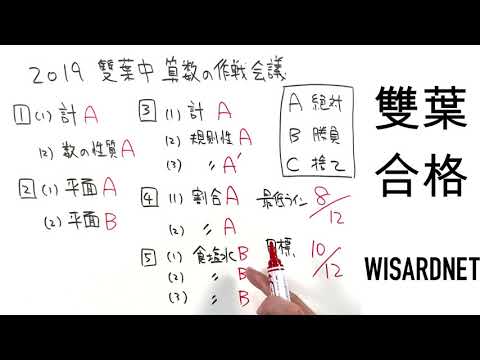 2019 雙葉中 算数の作戦会議
1 (1) 計 A
(2) 数の性質 A
2 (1) 平面 A
(2) 平面 B
3 (1) 計 A
(2) 規則性 A
(3) 〃 A'
4 (1) 割合 A
(2) 〃 A
5 (1) 食塩水 B
(2) 〃 B
(3) 〃 B
A 絶対
B 勝負
C 捨て
最低ライン 8/12
目標 10/12
雙葉
合格
WISARDNET